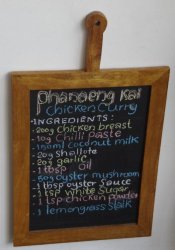 phanaeng Kai
chicken Curry
INGREDIENTS:
-200g chicken breast
-10g chilli paste
-150ml coconut milk
-20g shallots
-20g garlic
-1 tbsp oil
-50g oyster mushroom
-1 tbsp oyster sauce
-1 tsp white sugar
-1 tsp chicken powder
-1 lemongrass stalk